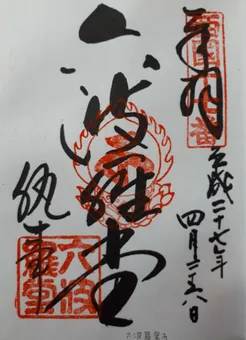 西国十七番
奉拝
平成二十七年
四月二十八日
六波羅堂
執事
六波
羅蜜寺
六波羅蜜寺